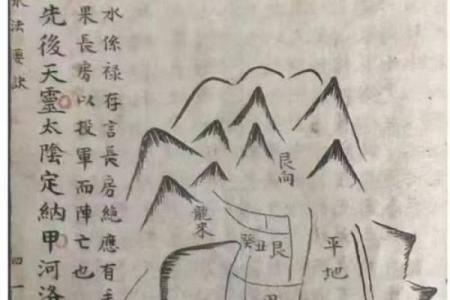 水係祿存言長房絶應有
果長房以投軍而陣亡也
先後天靈太陰定納甲河洛
水法要訣
四一
艮向
龍來
癸丑艮
平地